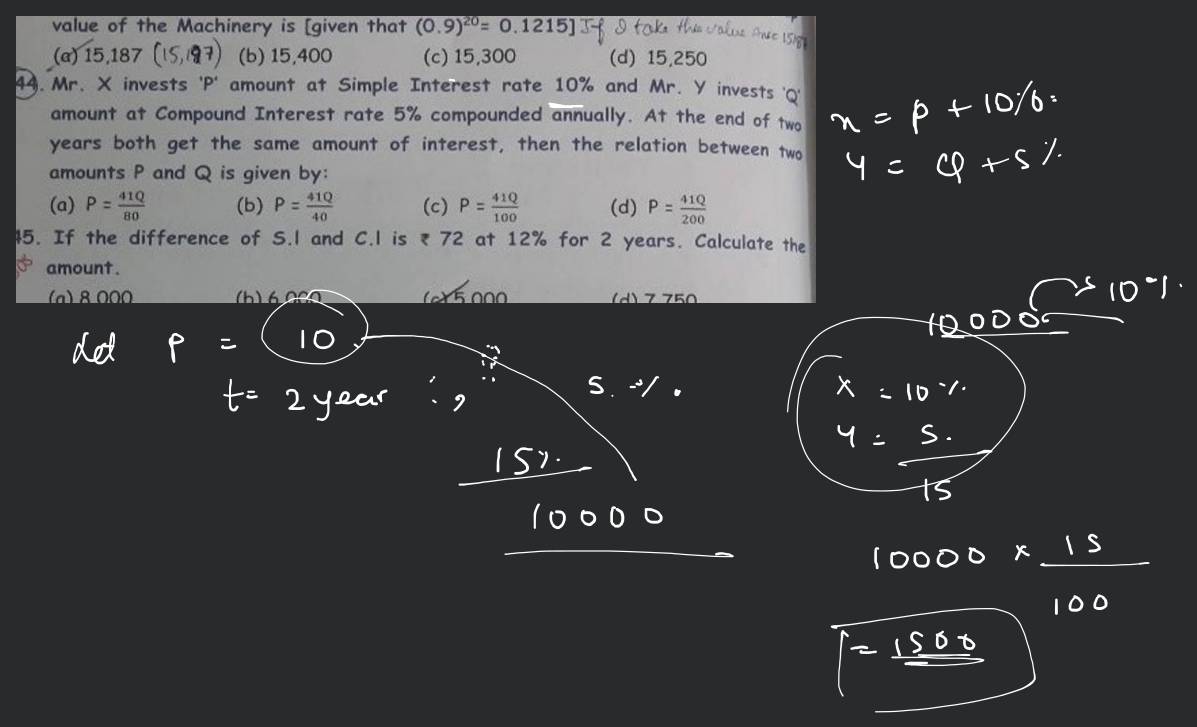 value of the Machinery is [given that (0.9)²⁰= 0.1215] If I take this value
(a) 15,187 (15,197) (b) 15,400 (c) 15,300 (d) 15,250
44. Mr. X invests 'P' amount at Simple Interest rate 10% and Mr. Y invests 'Q'
amount at Compound Interest rate 5% compounded annually. At the end of two
years both get the same amount of interest, then the relation between two
amounts P and Q is given by:
(a) P = 41Q/80 (b) P = 41Q/40 (c) P = 41Q/100 (d) P = 41Q/200
45. If the difference of S.I and C.I is ₹ 72 at 12% for 2 years. Calculate the
amount.
(a) 8,000 (b) 6,000 (c) 5,000 (d) 7,750
x = P + 10%=
y = Q + 5%
10000 10%
Let P = 10
t= 2 year
5 %.
15%
10000
x = 10%
y = 5.
15
10000 x 15/100
= 1500